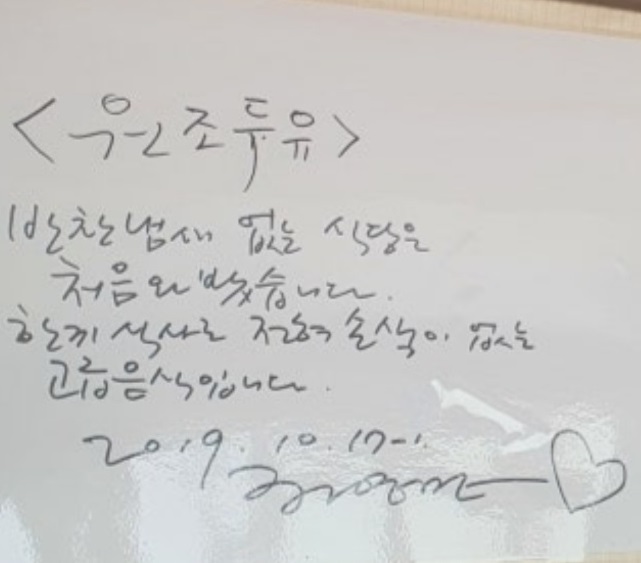 <원조두유>
반찬냄새 없는 식당은
처음 와 봤습니다.
한끼 식사로 전혀 손색이 없는
고급음식입니다.
2019. 10. 17